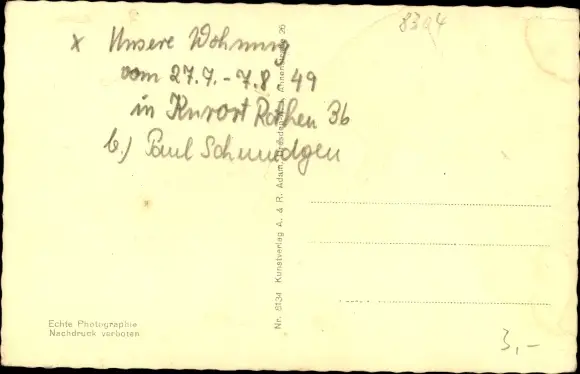 8304
x Unsere Wohnung
vom 27.7. - 7.8. 49
in Kurort Rathen 36
b.) Paul Schmiedgen
Nr. 8134 Kunstverlag A. & R. Adam, Dresden Annenstraße 26
Echte Photographie
Nachdruck verboten
3,-